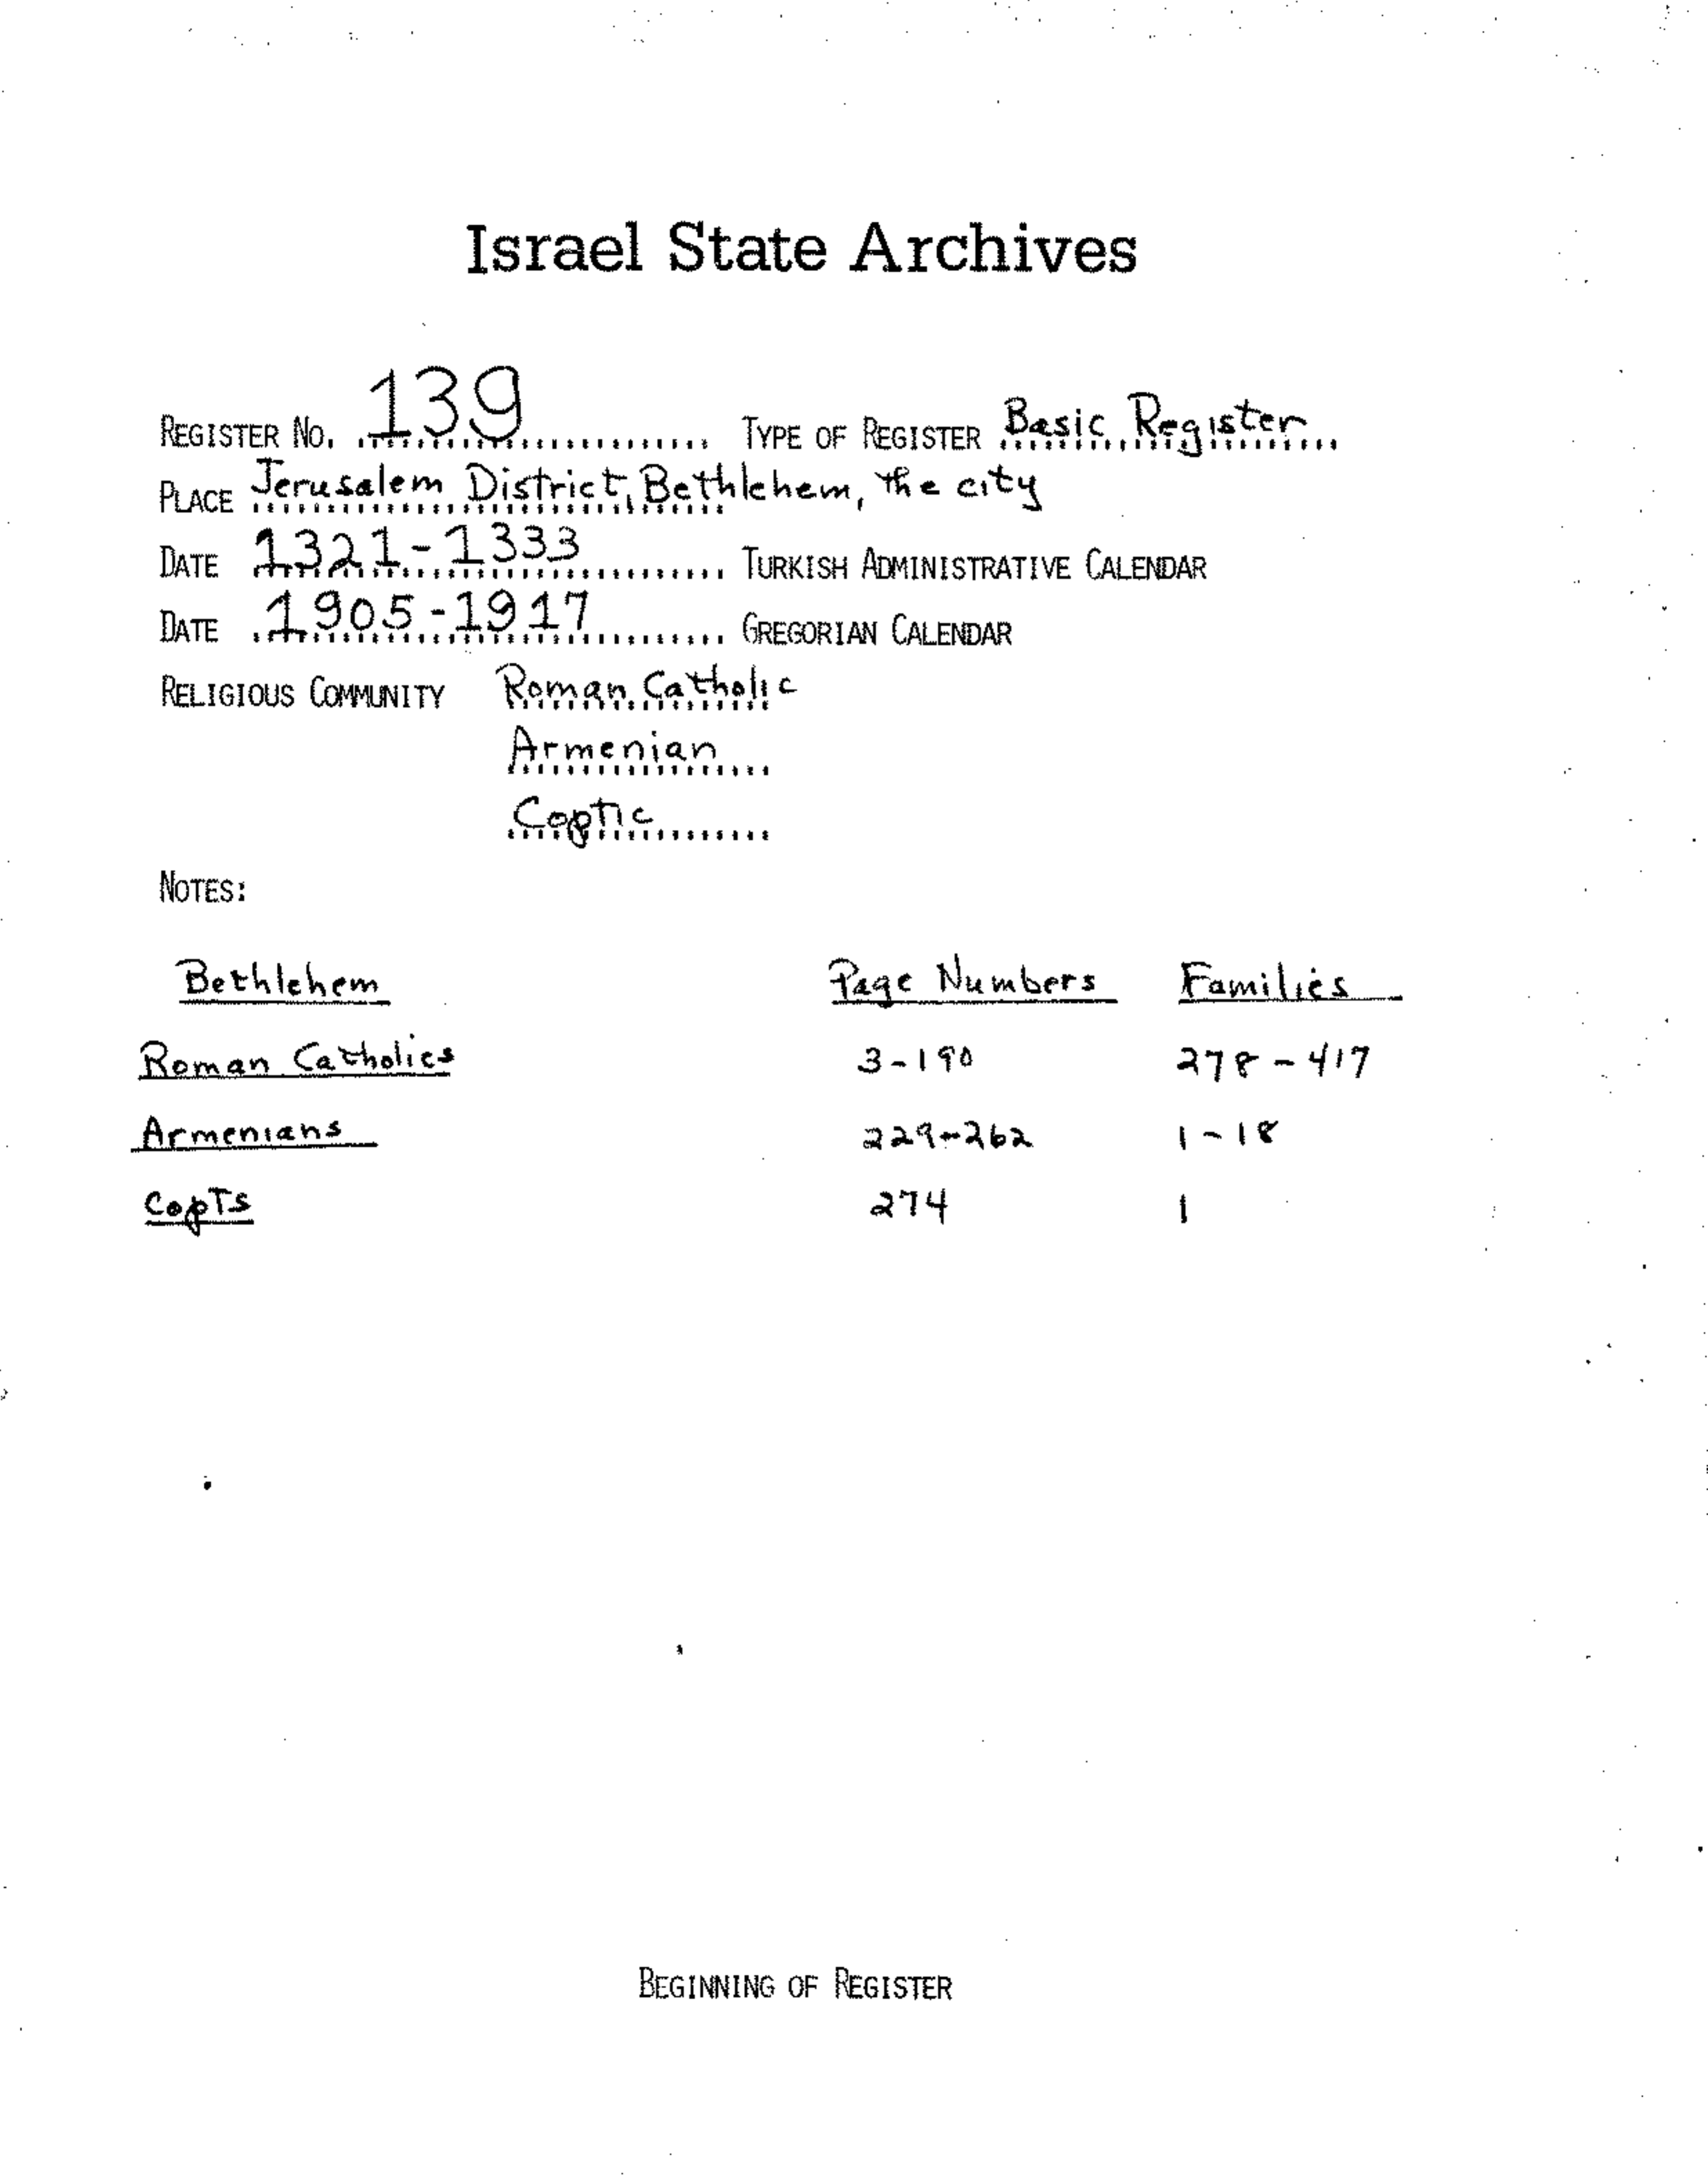 Israel State Archives
REGISTER NO. 139 TYPE OF REGISTER Basic Register
PLACE Jerusalem District, Bethlehem, the city
DATE 1321-1333 TURKISH ADMINISTRATIVE CALENDAR
DATE 1905-1917 GREGORIAN CALENDAR
RELIGIOUS COMMUNITY Roman Catholic
Armenian
Coptic
NOTES:
Bethlehem Page Numbers Families
Roman Catholics 3-190 278-417
Armenians 229-262 1-18
Copts 274 1
BEGINNING OF REGISTER